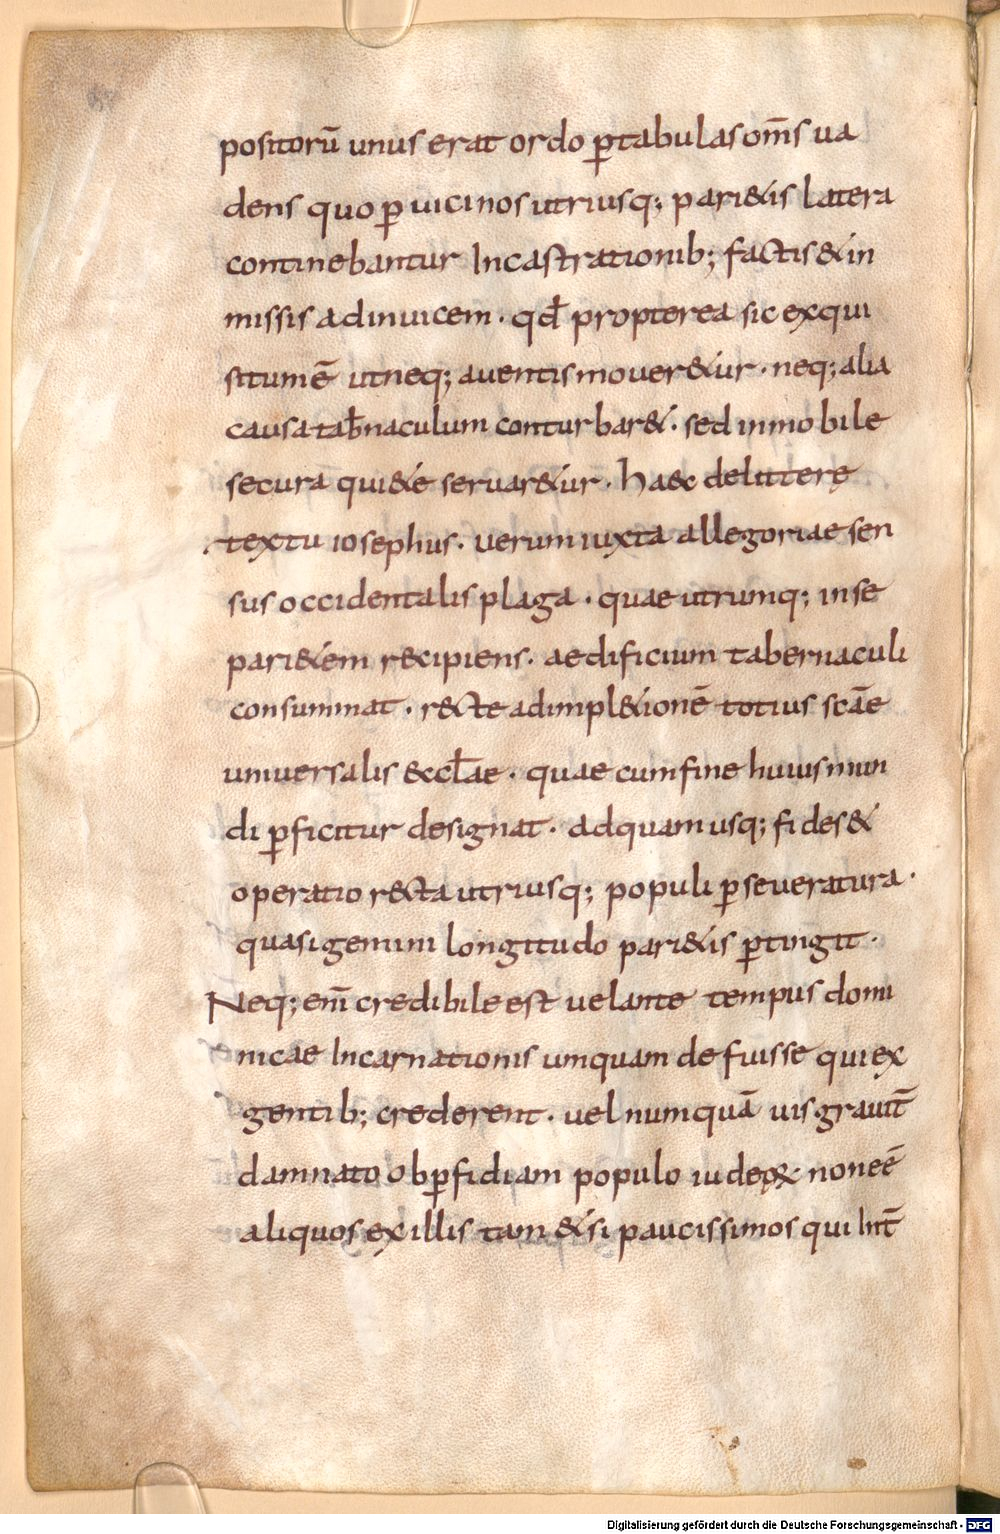 positorū unus erat ordo ꝑtabulas om̄s ua
dens quo ꝑ uicinos utriusq; pari&is latera
continebantur Incastrationib; factis & in
missis adinuicem · qđ propterea sic exqui
situm ē ut neq; a uentis mouer&ur · neq; alia
causa tab̄naculum conturbar& · sed inmobile
secura qui&e seruar&ur · haec de litterę
textu iosephus · uerum iuxta allegoriae sen
sus occidentalis plaga · quae utrumq; in se
pari&em r&cipiens · aedificium tabernaculi
consummat · r&cte adimpl&ionē totius scāe
uniuersalis &ccƚae · quae cum fine huius mun
di ꝑficitur designat · adquam usq; fides &
operatio r&cta utriusq; populi ꝑseueratura ·
quasi gemini longitudo pari&is ꝑtingit ·
Neq; enī credibile est uel ante tempus domi
nicae Incarnationis umquam defuisse qui ex
gentib; crederent · uel numquā uis grauit̄
damnato ob ꝑfidiam populo iudeoꝝ non eē
aliquos ex illis tam &si paucissimos qui Int̄
Digitalisierung gefördert durch die Deutsche Forschungsgemeinschaft - DFG